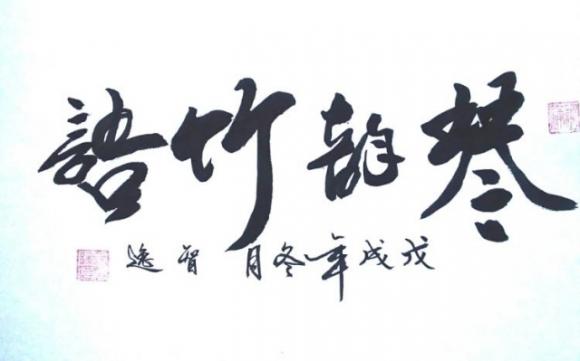 琴韵竹語
戊戌年冬月 智逸